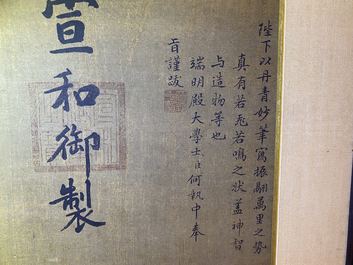 陛下以丹青妙筆寫振翮萬里之勢
真有若飛若鳴之狀蓋神智
与造物等也
端明殿大學士臣何執中奉
旨謹跋
宣和御製